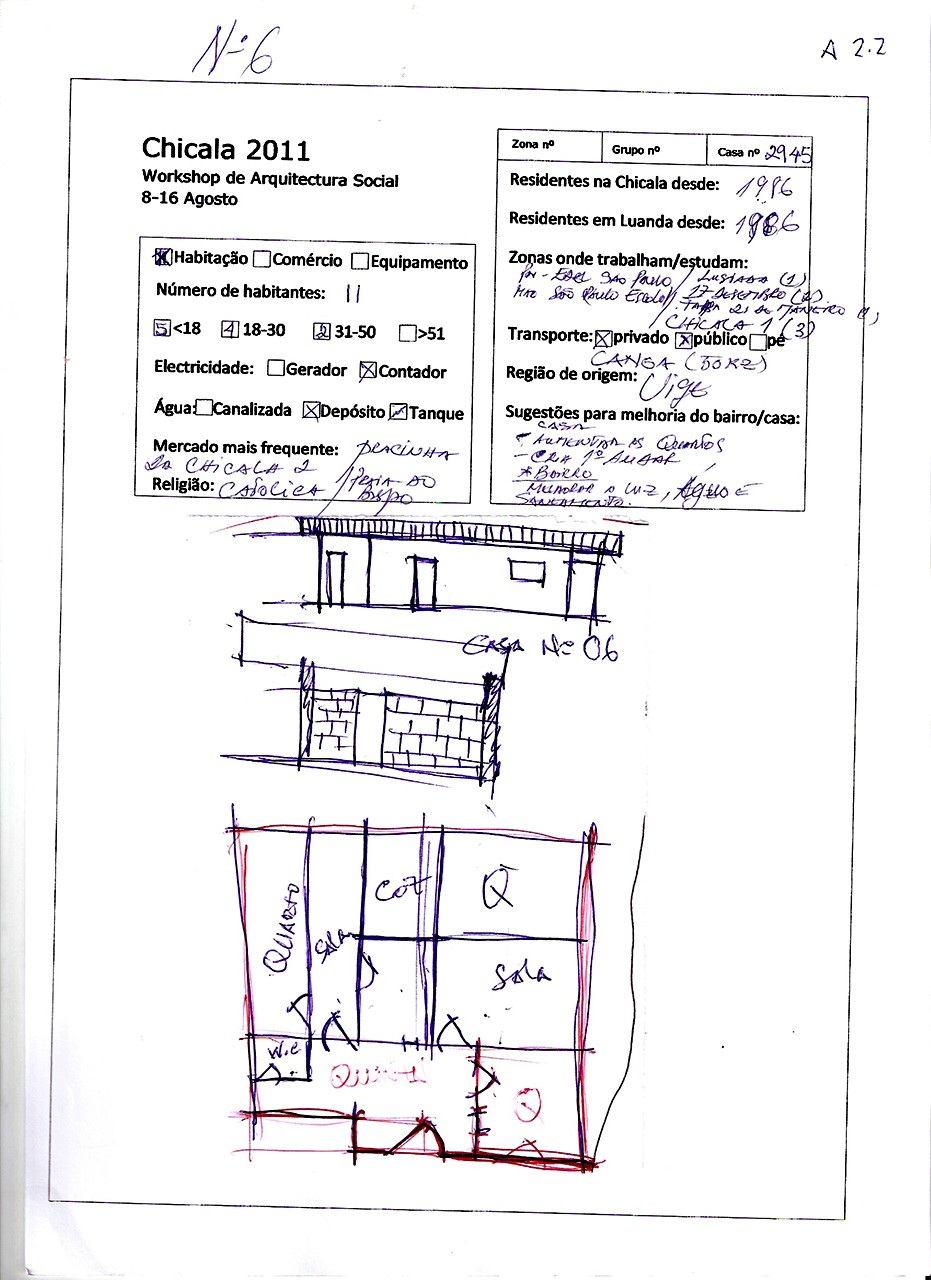 Nº 6
A 2.2
Chicala 2011
Workshop de Arquitectura Social
8-16 Agosto
Habitação Comércio Equipamento
Número de habitantes: 11
5 <18 4 18-30 2 31-50 >51
Electricidade: Gerador Contador
Água: Canalizada Depósito Tanque
Mercado mais frequente: PRACINHA
DA CHICALA 2 / PRAIA DO
BISPO
Religião: CATOLICA
Zona nº Grupo nº Casa nº 2945
Residentes na Chicala desde: 1986
Residentes em Luanda desde: 1986
Zonas onde trabalham/estudam:
SÃO PAULO / LUSIADA (1)
SÃO PAULO 17 DEZEMBRO (2)
CHICALA 1 (3)
Transporte: privado público pé
Região de origem: Uige
Sugestões para melhoria do bairro/casa:
CASA
- AUMENTAR OS QUARTOS
- 1º ANDAR
* BAIRRO
MELHORAR A LUZ, ÁGUA E
SANEAMENTO.
CASA Nº 06
QUARTO
SALA
COZ
Q
SALA
W.C
QUINTAL
Q